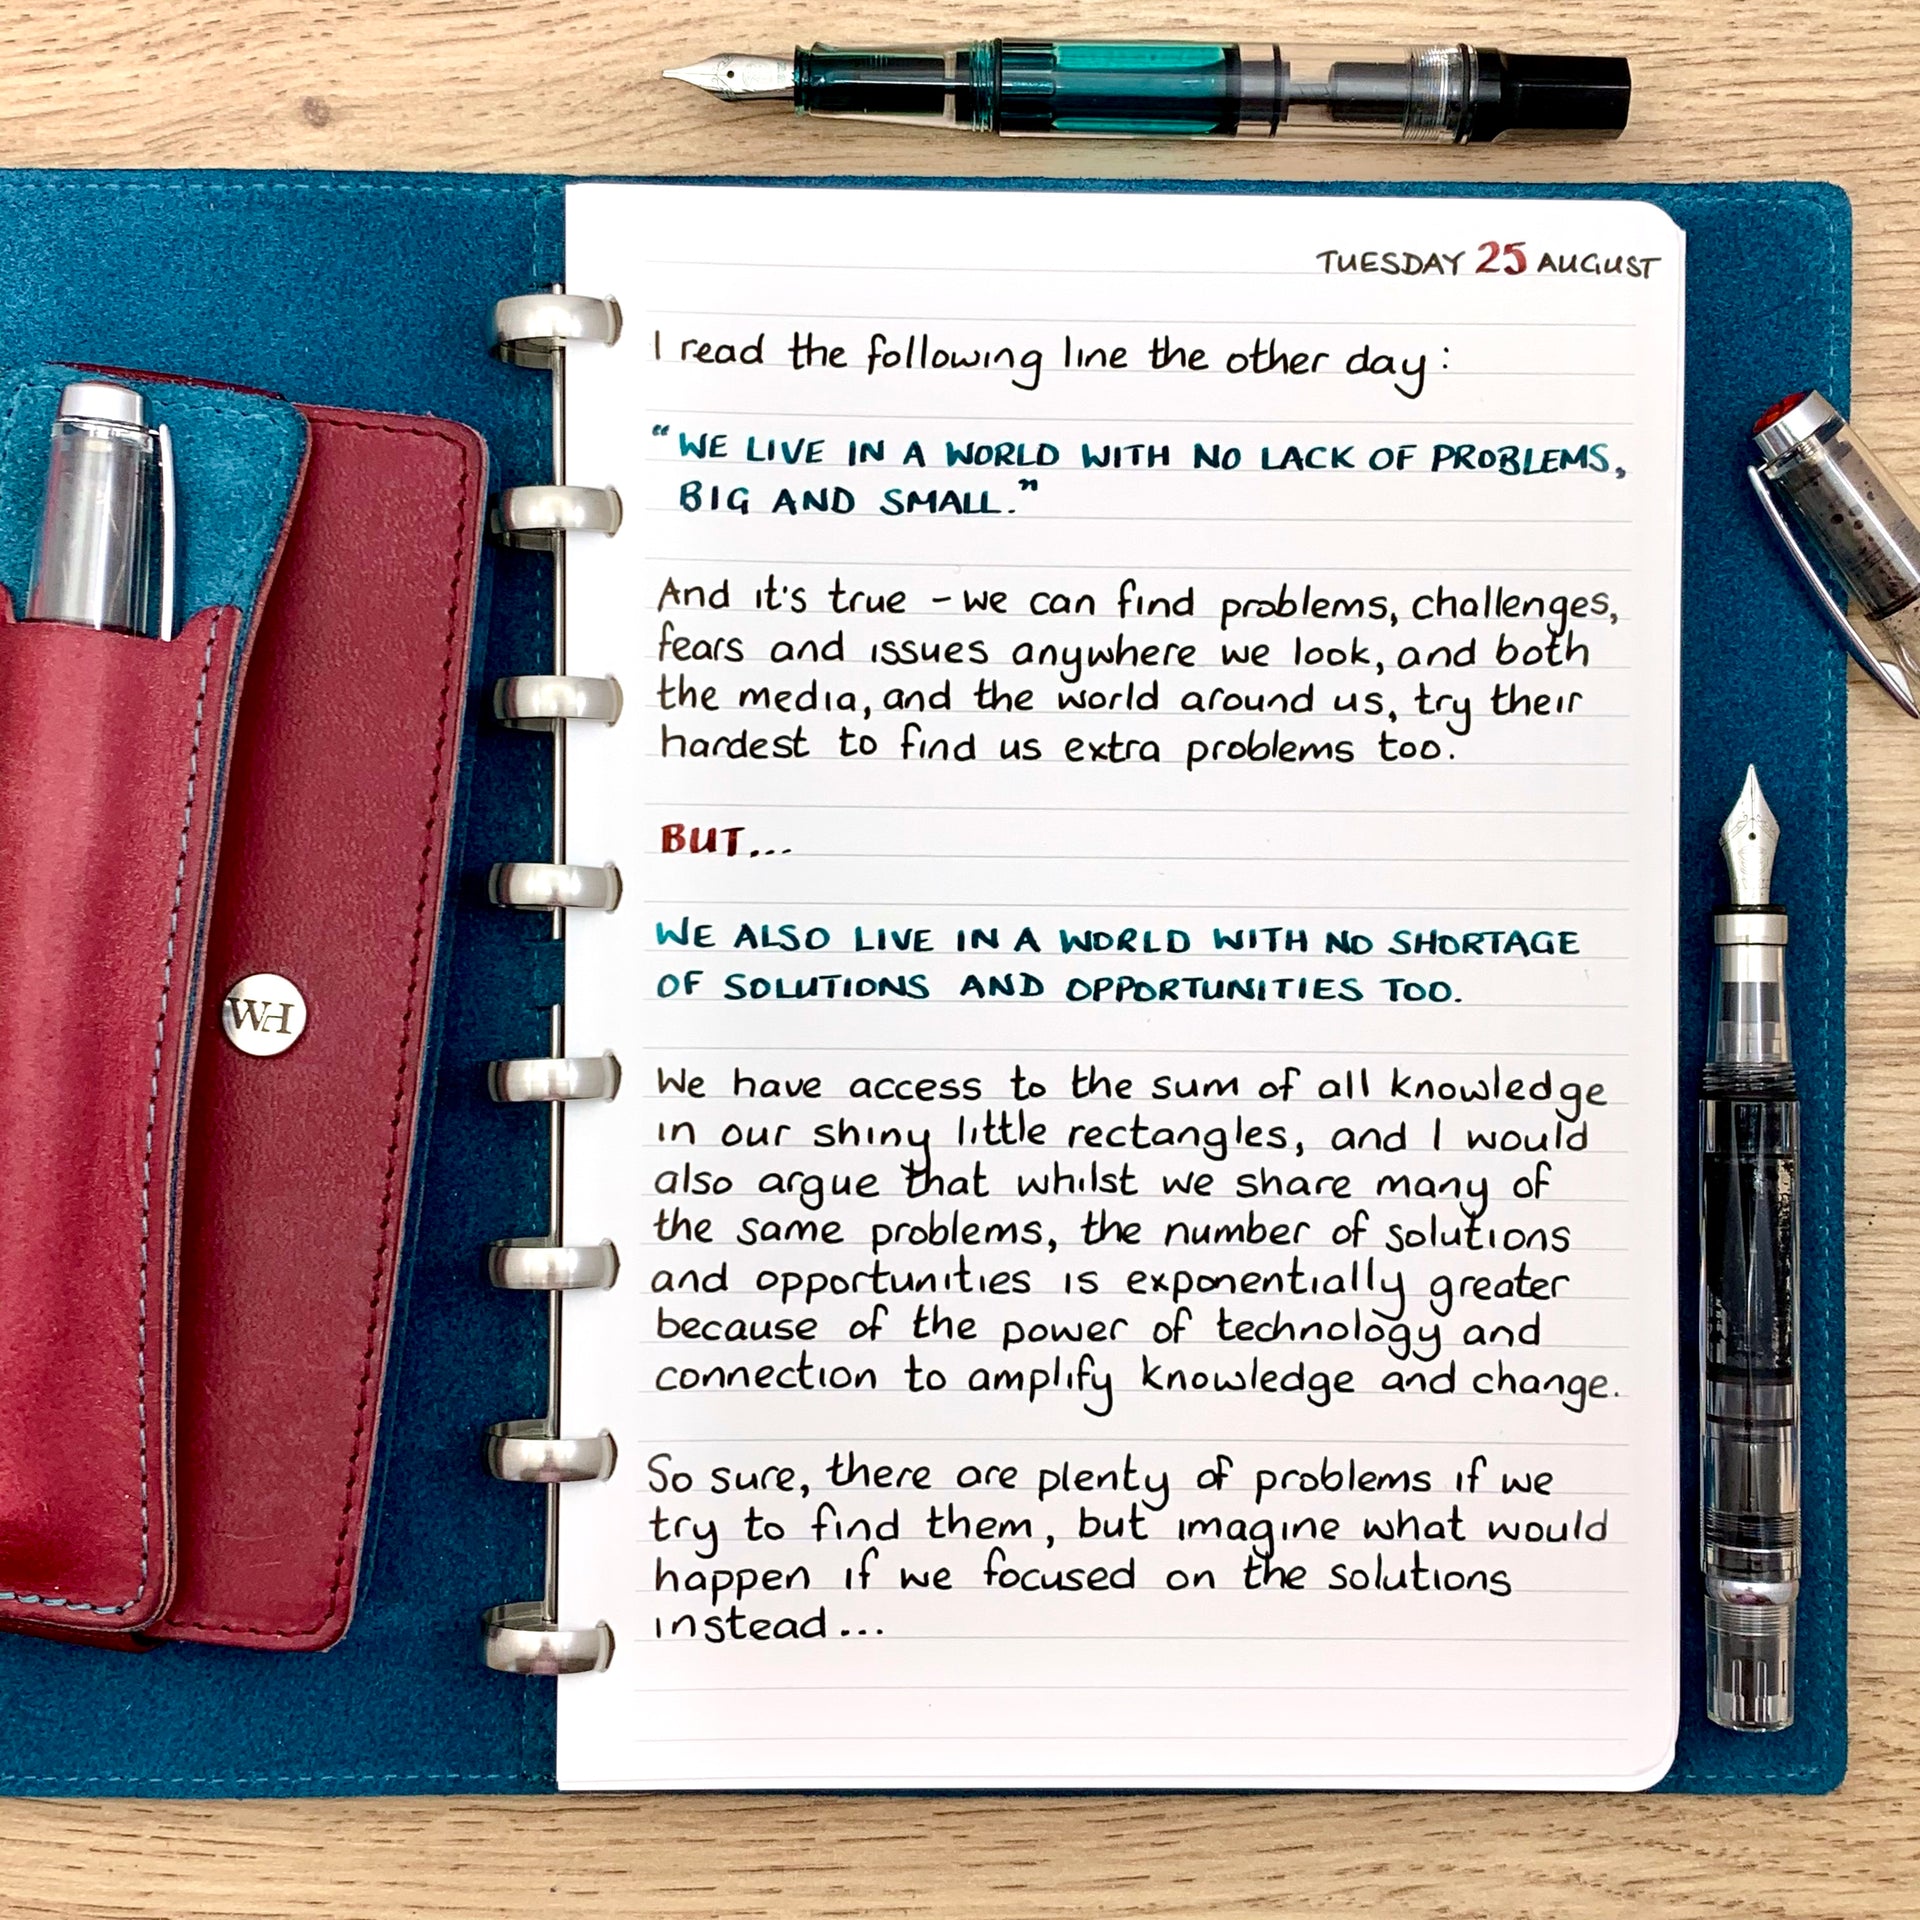 TUESDAY 25 AUGUST
I read the following line the other day:
“WE LIVE IN A WORLD WITH NO LACK OF PROBLEMS,
BIG AND SMALL.”
And it's true – we can find problems, challenges,
fears and issues anywhere we look, and both
the media, and the world around us, try their
hardest to find us extra problems too.
BUT...
WE ALSO LIVE IN A WORLD WITH NO SHORTAGE
OF SOLUTIONS AND OPPORTUNITIES TOO.
We have access to the sum of all knowledge
in our shiny little rectangles, and I would
also argue that whilst we share many of
the same problems, the number of solutions
and opportunities is exponentially greater
because of the power of technology and
connection to amplify knowledge and change.
So sure, there are plenty of problems if we
try to find them, but imagine what would
happen if we focused on the solutions
instead...
WH